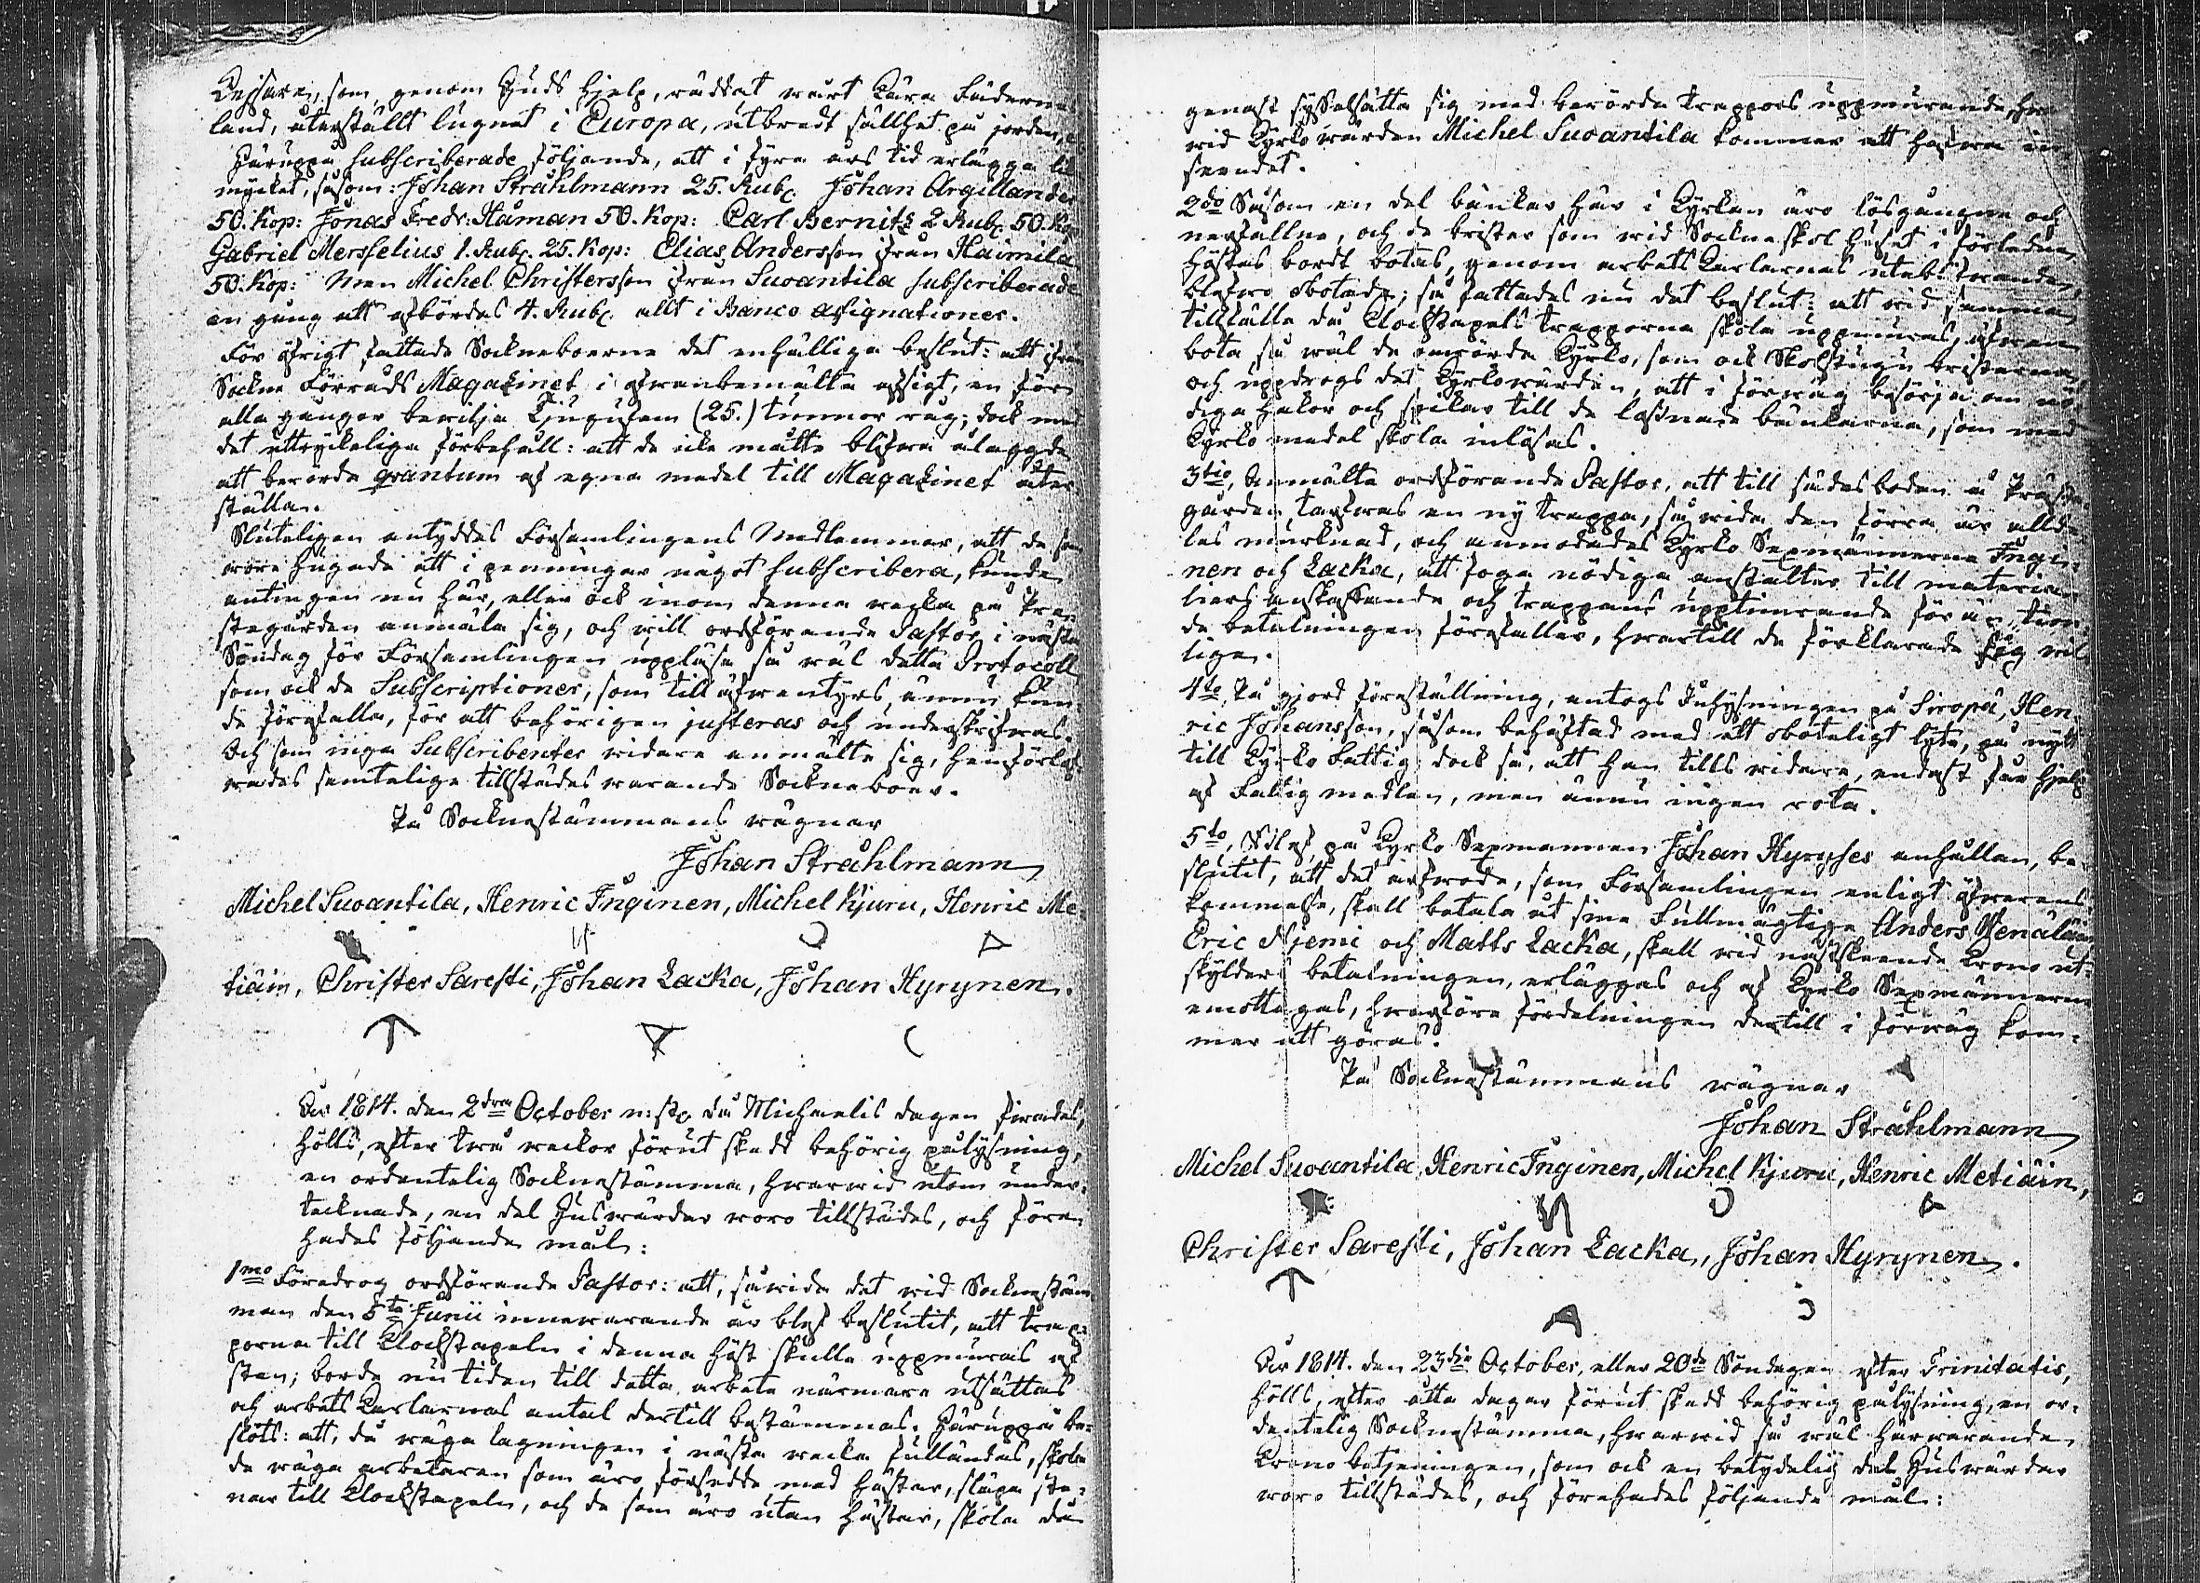 Kejsaren, som, genom Guds hjelp, räddat wårt Kära Fäderne-
land, återställt lugnet i Europa, utbredt sällhet på jorden,
Häruppå subscriberade följande, att i fyra års tid erlägga lik
mycket, såsom: Johan Stråhlmann 25. Rub. Johan Argillander
50. Kop: Jonas Fredr. Håman 50. Kop: Carl Bernitz 2 Rub. 50. Kop
Gabriel Mersselius 1. Rub. 25. Kop: Elias Andersson ifrån Haimila
50. Kop: Men Michel Christersson ifrån Suoantila subscriberade
en gång att afbördas 4. Rub. allt i Banco assignationer.
För öfrigt fattade Sockneboerne det enhälliga beslut: att ifrån
Sockne Förråds Magazinet i ofwanbemälta afsigt, en för
alla gånger bewilja Tjugufem (25.) tunnor råg; dock med
det uttryckeliga förbehåll: att de icke måtte blifwa ålaggde
att berörde qvantum af egna medel till Magazinet åter-
ställa.
Sluteligen antyddes Församlingens Medlemmar, att de som
woro hugade att i penningar något subscribera, kunde
antingen nu här, eller ock inom denna wecka på Pre-
stegården anmäla sig, och will ordförande Pastor i nästa
Söndag för Församlingen uppläsa så wäl detta Protocoll
som ock de Subscriptioner, som till äfwentyrs ännu kun-
de förefalla, för att behörigen justeras och underskrifwas.
Och som inga Subscribenter widare anmälte sig, hemförlof-
wades samtelige tillstädes warande Sockneboer.
På Socknestämmans wägnar
Johan Stråhlmann
Michel Suoantila, Henric Inginen, Michel Kjuru, Henric Me-
tiäin, Christer Saresti, Johan Lacka, Johan Hyrynen.
År 1814. den 2dra October n: st. då Michaelis dagen firades,
hölls, efter twå weckor förut skedd behörig pålysning,
en ordentelig Socknestämma, hwarwid utom under-
tecknade, en del Huswärdar woro tillstädes, och före-
hades följande mål:
1mo Föredrog ordförande Pastor: att, såwida det wid Socknestäm-
man den 5te Junii innewarande år blef beslutit, att trap-
porna till Clockstapeln i denna höst skulle uppmuras af
sten; borde nu tiden till detta arbete närmare utsättas
och arbets Karlarnas antal dertill bestämmas. Häruppå be-
slöts: att, då wäga lagningen i nästa wecka fulländas, skola
de wäga arbetaren som äro försedde med hästar, släpa ste-
nar till Clockstapeln, och de som äro utan hästar, skola då
genast sysselsätta sig med berörde trappors uppmurande,
wid Kyrkowärden Michel Suoantila kommer att hafwa in-
seendet.
2do Såsom en del bänkar här i Kyrkan äro lösgångne och
nerfallne, och de brister som wid Sockneskol huset i förledne
höstas bordt botas, genom arbets Karlarnas uteblifwande,
blefwo obotade; så fattades nu det beslut: att wid samma
tillfälle då Clockstapels trapporna skola uppmuras, äfwen
bota så wäl de omrörde Kyrko, som ock Skolstugu bristerna,
och updrogs det Kyrkowärden, att i förwäg besörja om nö-
diga hakor och spikar till de lossnade bänkarna, som med
Kyrko medel skola inlösas.
3tio, Anmälte ordförande Pastor, att till sädesboden å Präste-
gården tarfwas en ny trappa, såwida den förra är allde-
les murknad, och anmodades Kyrko Sexmännerna Ingi-
nen och Lacka, att foga nödiga anstalter till materia-
liers anskaffande och trappans upptimrande för än tion-
de betalningen förefaller, hwartill de förklarade sig wil-
lige.
4to På gjord föreställning, antogs Inhysningen på Siropä, Hen-
ric Johansson, såsom behäftad med ett oboteligt lyte, på nytt
till Kyrko Fattig; dock så, att han tills widare, endast får hjelp
af Fattig medlen, men ännu ingen rota.
5to, Blef, på Kyrko Sexmannen Johan Hyryses anhållan, be-
slutit, att det arfwode, som Församlingen enligt öfwerens-
kommelse, skall betala åt sine Fullmägtige Anders Henäläin
Eric Njemi och Matts Lacka, skall wid nästskeende Krono ut-
skylders betalningen, erläggas och af Kyrko Sexmännerna
emottagas, hwarföre fördelningen dertill i förwäg kom-
mer att göras.
På Socknestämmans wägnar
Johan Stråhlmann
Michel Suoantila, Henric Inginen, Michel Kjuru, Henric Metiäin,
Christer Saresti, Johan Lacka, Johan Hyrynen.
År 1814. den 23die October, eller 20de Söndagen efter Trinitatis,
hölls, efter åtta dagar förut skedd behörig pålysning, en or-
dentelig Socknestämma, hwarwid så wäl härwarande
Krono betjeningen, som ock en betydelig del Huswärdar
woro tillstädes, och förehades följande mål: